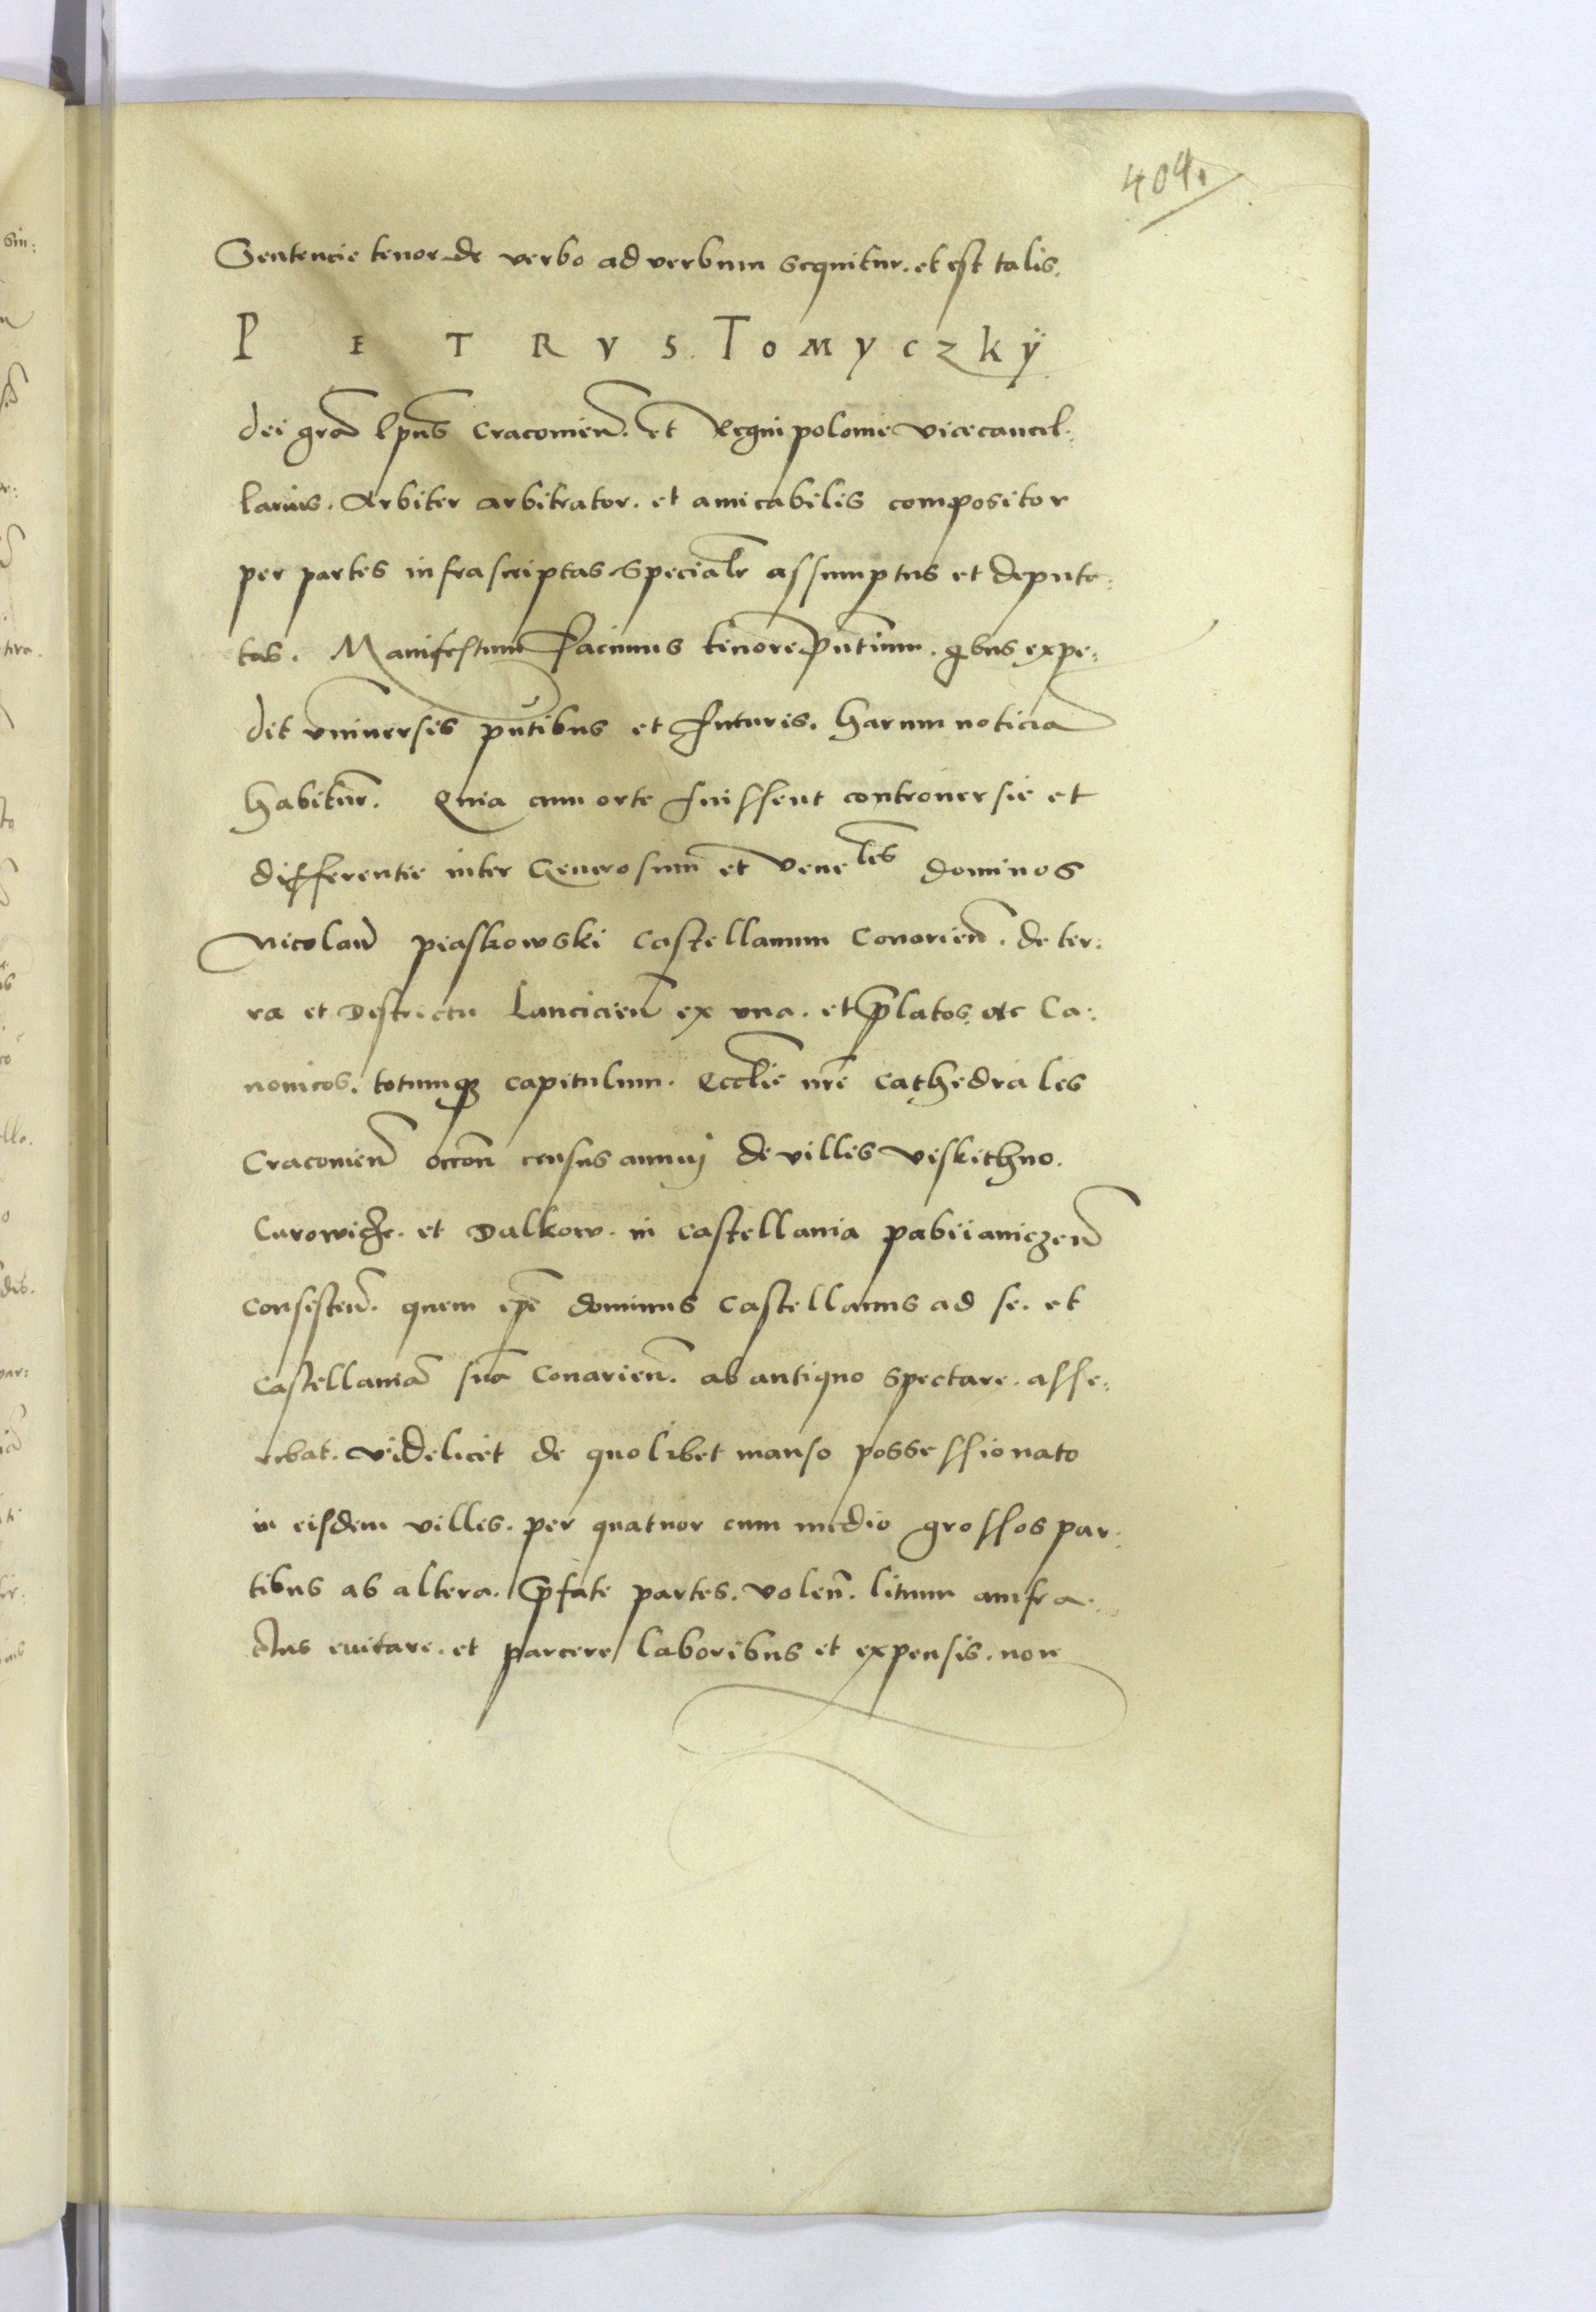 404.
Sentencie tenor de verbo ad verbum sequitur. et est talis.
PETRVS TOMyczkÿ
dei gra͞ Ep͞us Cracovien͞. et Regni polonie vicecancel:
larius. Arbiter arbitrator. et amicabilis compositor
per partes infrascriptas specialr͞ assumptus et deputa:
tus. Manifestum facimus tenore p͞ntium. qbus expe:
dit vniversis pn͞tibus et futuris. harum noticia͞
habitur͞. Quia cum orte fuissent controversie et
differentie inter Generosum et Veneles͞ dominos
Nicolau͞ piaskowski castellanum Conarien͞. de ter:
ra et Districtu Lancicien͞ ex vna. et p͞latos. etc Ca:
nonicos. totumqꝫ capitulum. Eccl͞ie nr͞e cathedrales
Cracovien͞ occo͞n census annuj de villis viskithno.
Curowicze. et Dalkow. in castellania pabiianiczen͞
consisten͞. quem ip͞e dominus castellanus ad se. et
castellania͞ sua͞ Conarien͞. ab antiquo spectare. asse:
rebat. videlicet de quolibet manso possessionato
in eisdem villis. per quatuor cum medio grossos par:
tibus ab altera. p͞fate partes. volen͞. litium amfra:
ctus evitare. et parcere laboribus et expensis. non